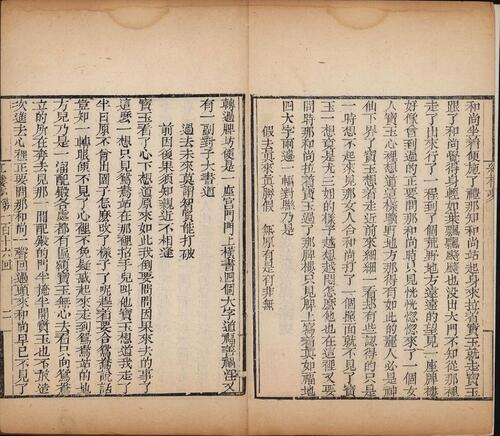 和尚坐着便施了禮那知和尚站起身來拉着寶玉就走寶玉
跟了和尚覺得身輕如葉飄飄颻颻也沒出大門不知從那裡
走了出來行了一程到了個荒野地方遠遠的望見一座牌樓
好像曾到過的正要問那和尚時只見恍恍惚惚來了一個女
人寶玉心裡想道這樣曠野地方那得有如此的麗人必是神
仙下界了寶玉想着走近前來細細一看竟有些認得的只是
一時想不起來見那女人合和尚打了一個照面就不見了寶
玉一想竟是尤三姐的樣子越想越納悶怎麽他也在這裡又要
問時那和尚拉着寶玉過了那牌樓只見牌上寫着真如福地
四大字兩邊一幅對聯乃是
假去真來真勝假 無原有是有非無
第一百十六回 二
轉過牌坊便是一座宮門門上橫書四個大字道福善禍淫又
有一副對子大書道
過去未來莫謂智賢能打破
前因後果須知親近不相逢
寶玉看了心下想道原來如此我倒要問問因果來去的事了
這麽一想只見鴛鴦站在那裡招手兒叫他寶玉想道我走了
半日原不曾出園子怎麽改了樣子了呢趕着要合鴛鴦說話
豈知一轉眼便不見了心裡不免疑惑起來走到鴛鴦站的地
方兒乃是一溜配殿各處都有匾額寶玉無心去看只向鴛鴦
立的所在奔去見那一間配殿的門半掩半開寶玉也不敢造
次進去心裡正要問那和尚一聲回過頭來和尚早已不見了